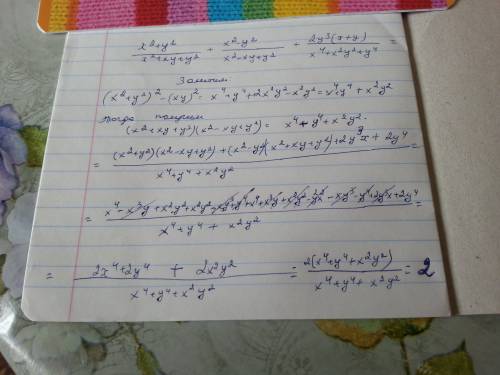 x²+y² / x²+xy+y² + x²-y² / x²-xy+y² + 2y³(x+y) / x⁴+x²y²+y⁴ =
Заметим
(x²+y²)² - (xy)² = x⁴+y⁴+2x²y²-x²y² = x⁴+y⁴+x²y²
Тогда получим
(x²+xy+y²)(x²-xy+y²) = x⁴+y⁴+x²y².
= (x²+y²)(x²-xy+y²)+(x²-y²)(x²+xy+y²)+2y³x+2y⁴ / x⁴+y⁴+x²y² =
= x⁴-x³y+x²y²+x²y²-xy³+y⁴+x⁴+x³y+x²y²-y²x²-xy³-y⁴+2y³x+2y⁴ / x⁴+y⁴+x²y² =
= 2x⁴+2y⁴+2x²y² / x⁴+y⁴+x²y² = 2(x⁴+y⁴+x²y²) / x⁴+y⁴+x²y² = 2